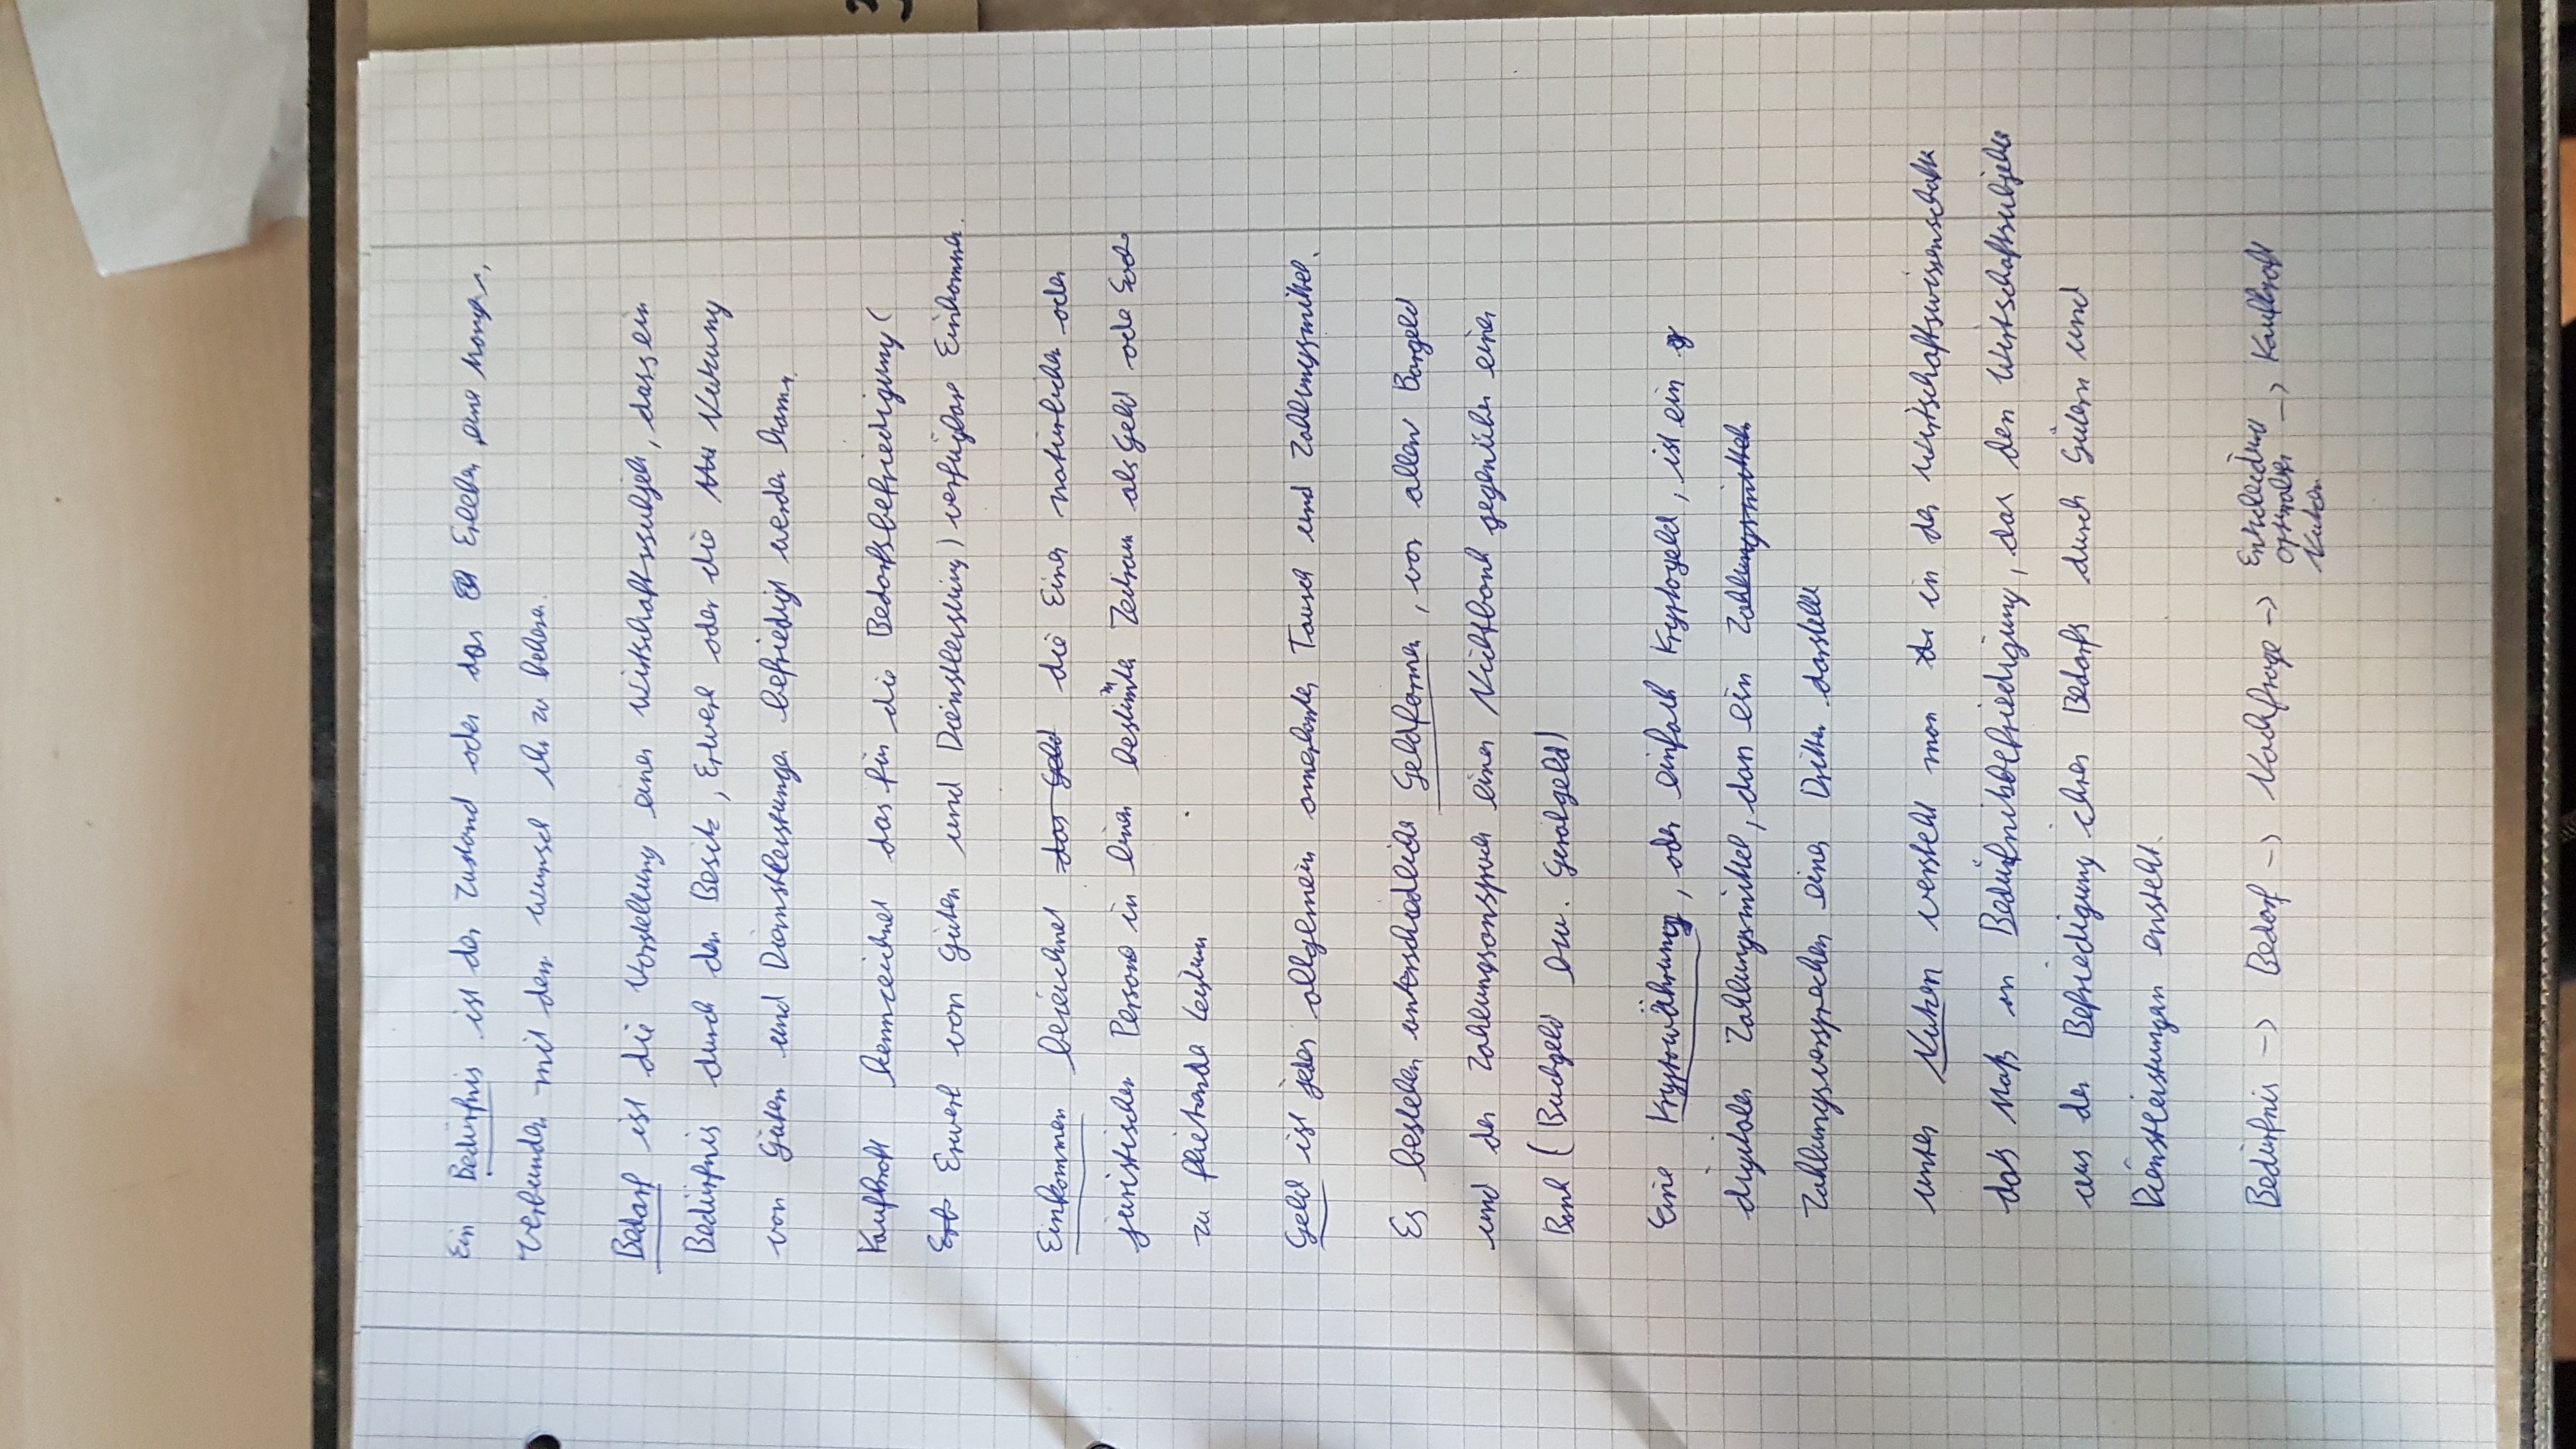 Ein Bedürfnis ist der Zustand oder das Erleben eine Mangels,
Verbunden mit dem wunsch ihn zu beheben.
Bedarf ist die Vorstellung eines Wirtschaftssubjekt, dass ein
Bedürfnis durch den Besitz, Erwerb oder die Nutzung
von Güter und Dienstleistungen befriedigt werden kann.
Kaufkraft kennzeichnet das für die Bedarfsbefriedigung (
Erwerb von Güter und Dienstleistung) verfügbare Einkommen.
Einkommen bezeichnet das Geld die Einer natürlichen oder
juristischen Person in einen bestimmten Zeitraum als Geld oder Sach
zu fließende Leistung
Geld ist jedes allgemein anerkanntes Tausch und Zahlungsmittel.
Es bestehen unterschiedliche Geldformen, vor allem Bargeld
und der Zahlungsanspruch einer Nichtbank gegenüber einer
Bank (Buchgeld bzw. Giralgeld)
Eine Kryptowährung, oder einfach Kryptogeld, ist ein
digitales Zahlungsmittel, dass ein Zahlungsmittel
Zahlungsversprechen eines Dritten darstellt
unter Nutzen versteht man in der Wirtschaftswissenschaft
das Maß an Bedürfnisbefriedigung, das den Wirtschaftssubjekte
aus der Befriedigung ihres Bedarfs durch Gütern und
Dienstleistungen ensteht.
Bedürfnis -> Bedarf -> Nachfrage -> Entscheidung optimaler Nutzen -> Kaufkraft